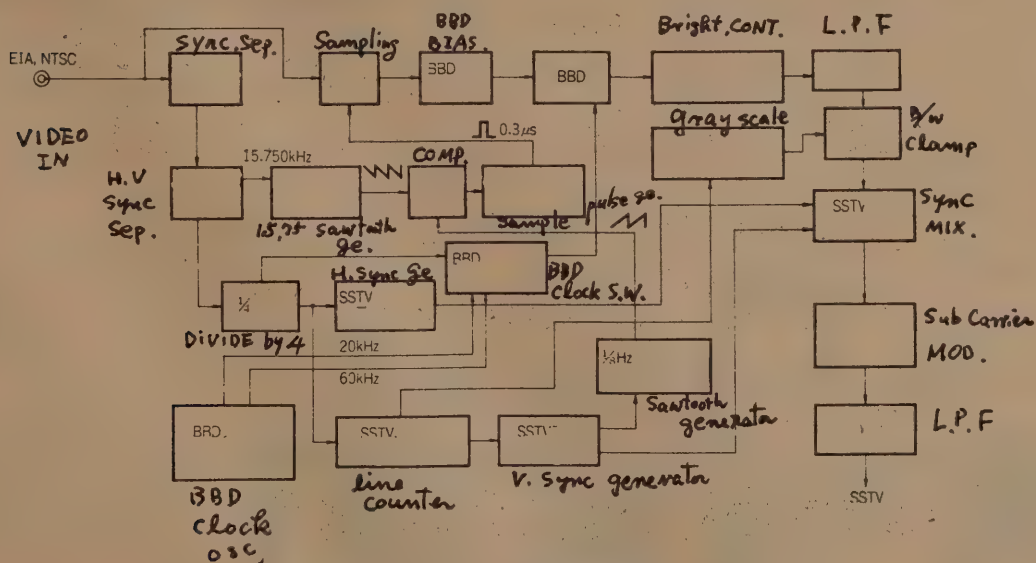 EIA, NTSC
VIDEO
IN
Sync. Sep.
Sampling
BBD
BIAS.
BBD
BBD
Bright. CONT.
L.P.F
0.3μs
gray scale
B/W
Clamp
H.V
Sync
Sep.
15.750kHz
15.75 Sawtooth
ge.
COMP.
Sample pulse ge.
SSTV
Sync
MIX.
BBD
BBD
Clock S.W.
1/4
DIVIDE by 4
H. Sync ge
SSTV
20kHz
60kHz
1/8 Hz
Sawtooth
generator
Sub Carrier
MOD.
BBD.
BBD
Clock
osc.
SSTV.
line
counter
SSTV
V. Sync generator
L.P.F
SSTV